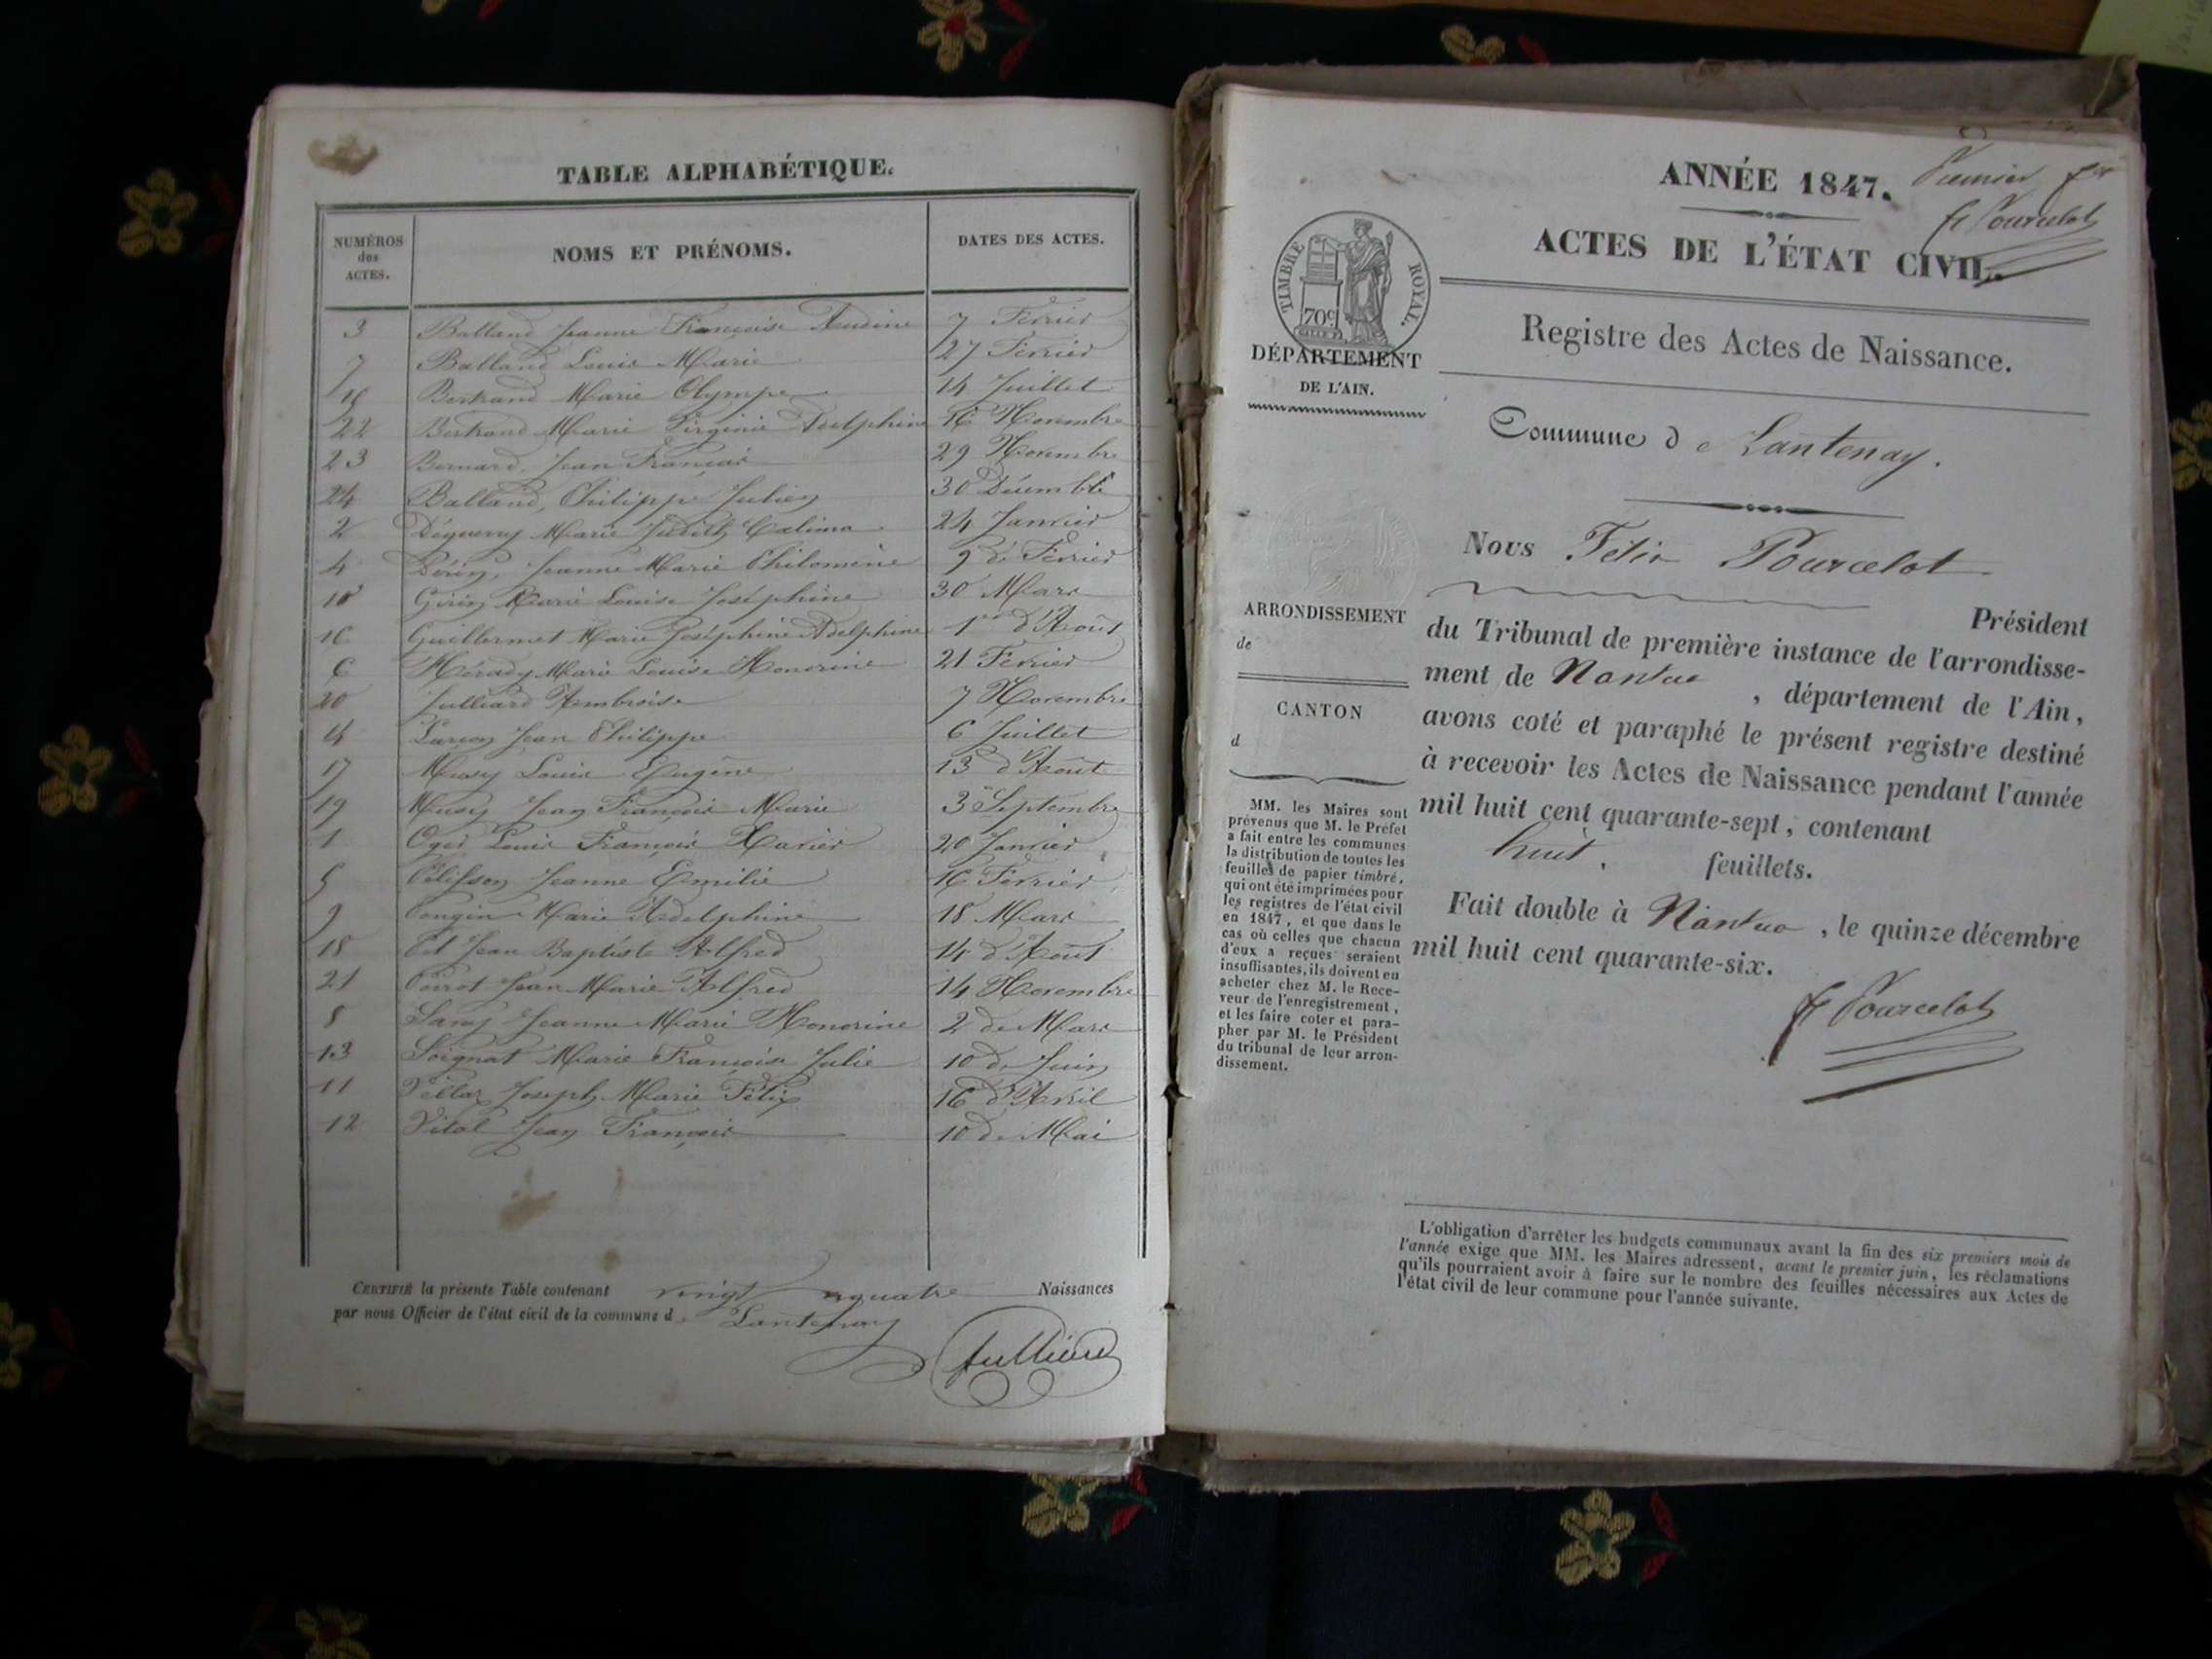 TABLE ALPHABÉTIQUE.
NUMÉROS des ACTES.
NOMS ET PRÉNOMS.
DATES DES ACTES.
3 Balland Jeanne Françoise 7 Février
7 Balland Louis Marie 27 Février
Bertrand Marie Olympe 14 Juillet
22 Bertrand Marie Virginie Adelphine 16 Novembre
23 Bernard, Jean François 29 Novembre
24 Balland, Philippe Julien 30 Décembre
2 Marie Judith 24 Janvier
4 Jeanne Marie Philomène 9 de Février
10 Girin Marie Louise Joséphine 30 Mars
16 Guillermet Marie Joséphine Adelphine 1er d'Août
6 Marie Louise Honorine 21 Février
20 Julliard Ambroise 7 Novembre
Jean Philippe 6 Juillet
17 Musy Louis Eugène 13 d'Août
19 Musy Jean François Marie 3 Septembre
1 Oger Louis François Xavier 20 Janvier
5 Pélisson Jeanne Emilie 16 Février
9 Pongin Marie Adelphine 18 Mars
18 Jean Baptiste Alfred 14 d'Août
21 Poirot Jean Marie Alfred 14 Novembre
8 Jeanne Marie Honorine 2 de Mars
13 Soignat Marie Françoise Julie 10 de Juin
11 Joseph Marie Félix 16 d'Avril
12 Vital Jean François 10 de Mai
CERTIFIÉ la présente Table contenant vingt quatre Naissances
par nous Officier de l'état civil de la commune de Lantenay
Julliard
Premier fet
F Pourcelot
ANNÉE 1847.
ACTES DE L'ÉTAT CIVIL.
TIMBRE ROYAL.
70c
DÉPARTEMENT
DE L'AIN.
Registre des Actes de Naissance.
Commune de Lantenay.
Nous Félix Pourcelot
Président
du Tribunal de première instance de l'arrondisse-
ment de Nantua, département de l'Ain,
avons coté et paraphé le présent registre destiné
à recevoir les Actes de Naissance pendant l'année
mil huit cent quarante-sept, contenant
huit. feuillets.
Fait double à Nantua, le quinze décembre
mil huit cent quarante-six.
F Pourcelot
ARRONDISSEMENT
de
CANTON
d
MM. les Maires sont
prévenus que M. le Préfet
a fait entre les communes
la distribution de toutes les
feuilles de papier timbré,
qui ont été imprimées pour
les registres de l'état civil
en 1847, et que dans le
cas où celles que chacun
d'eux a reçues seraient
insuffisantes, ils doivent en
acheter chez M. le Rece-
veur de l'enregistrement,
et les faire coter et para-
pher par M. le Président
du tribunal de leur arron-
dissement.
L'obligation d'arrêter les budgets communaux avant la fin des six premiers mois de
l'année exige que MM. les Maires adressent, avant le premier juin, les réclamations
qu'ils pourraient avoir à faire sur le nombre des feuilles nécessaires aux Actes de
l'état civil de leur commune pour l'année suivante.